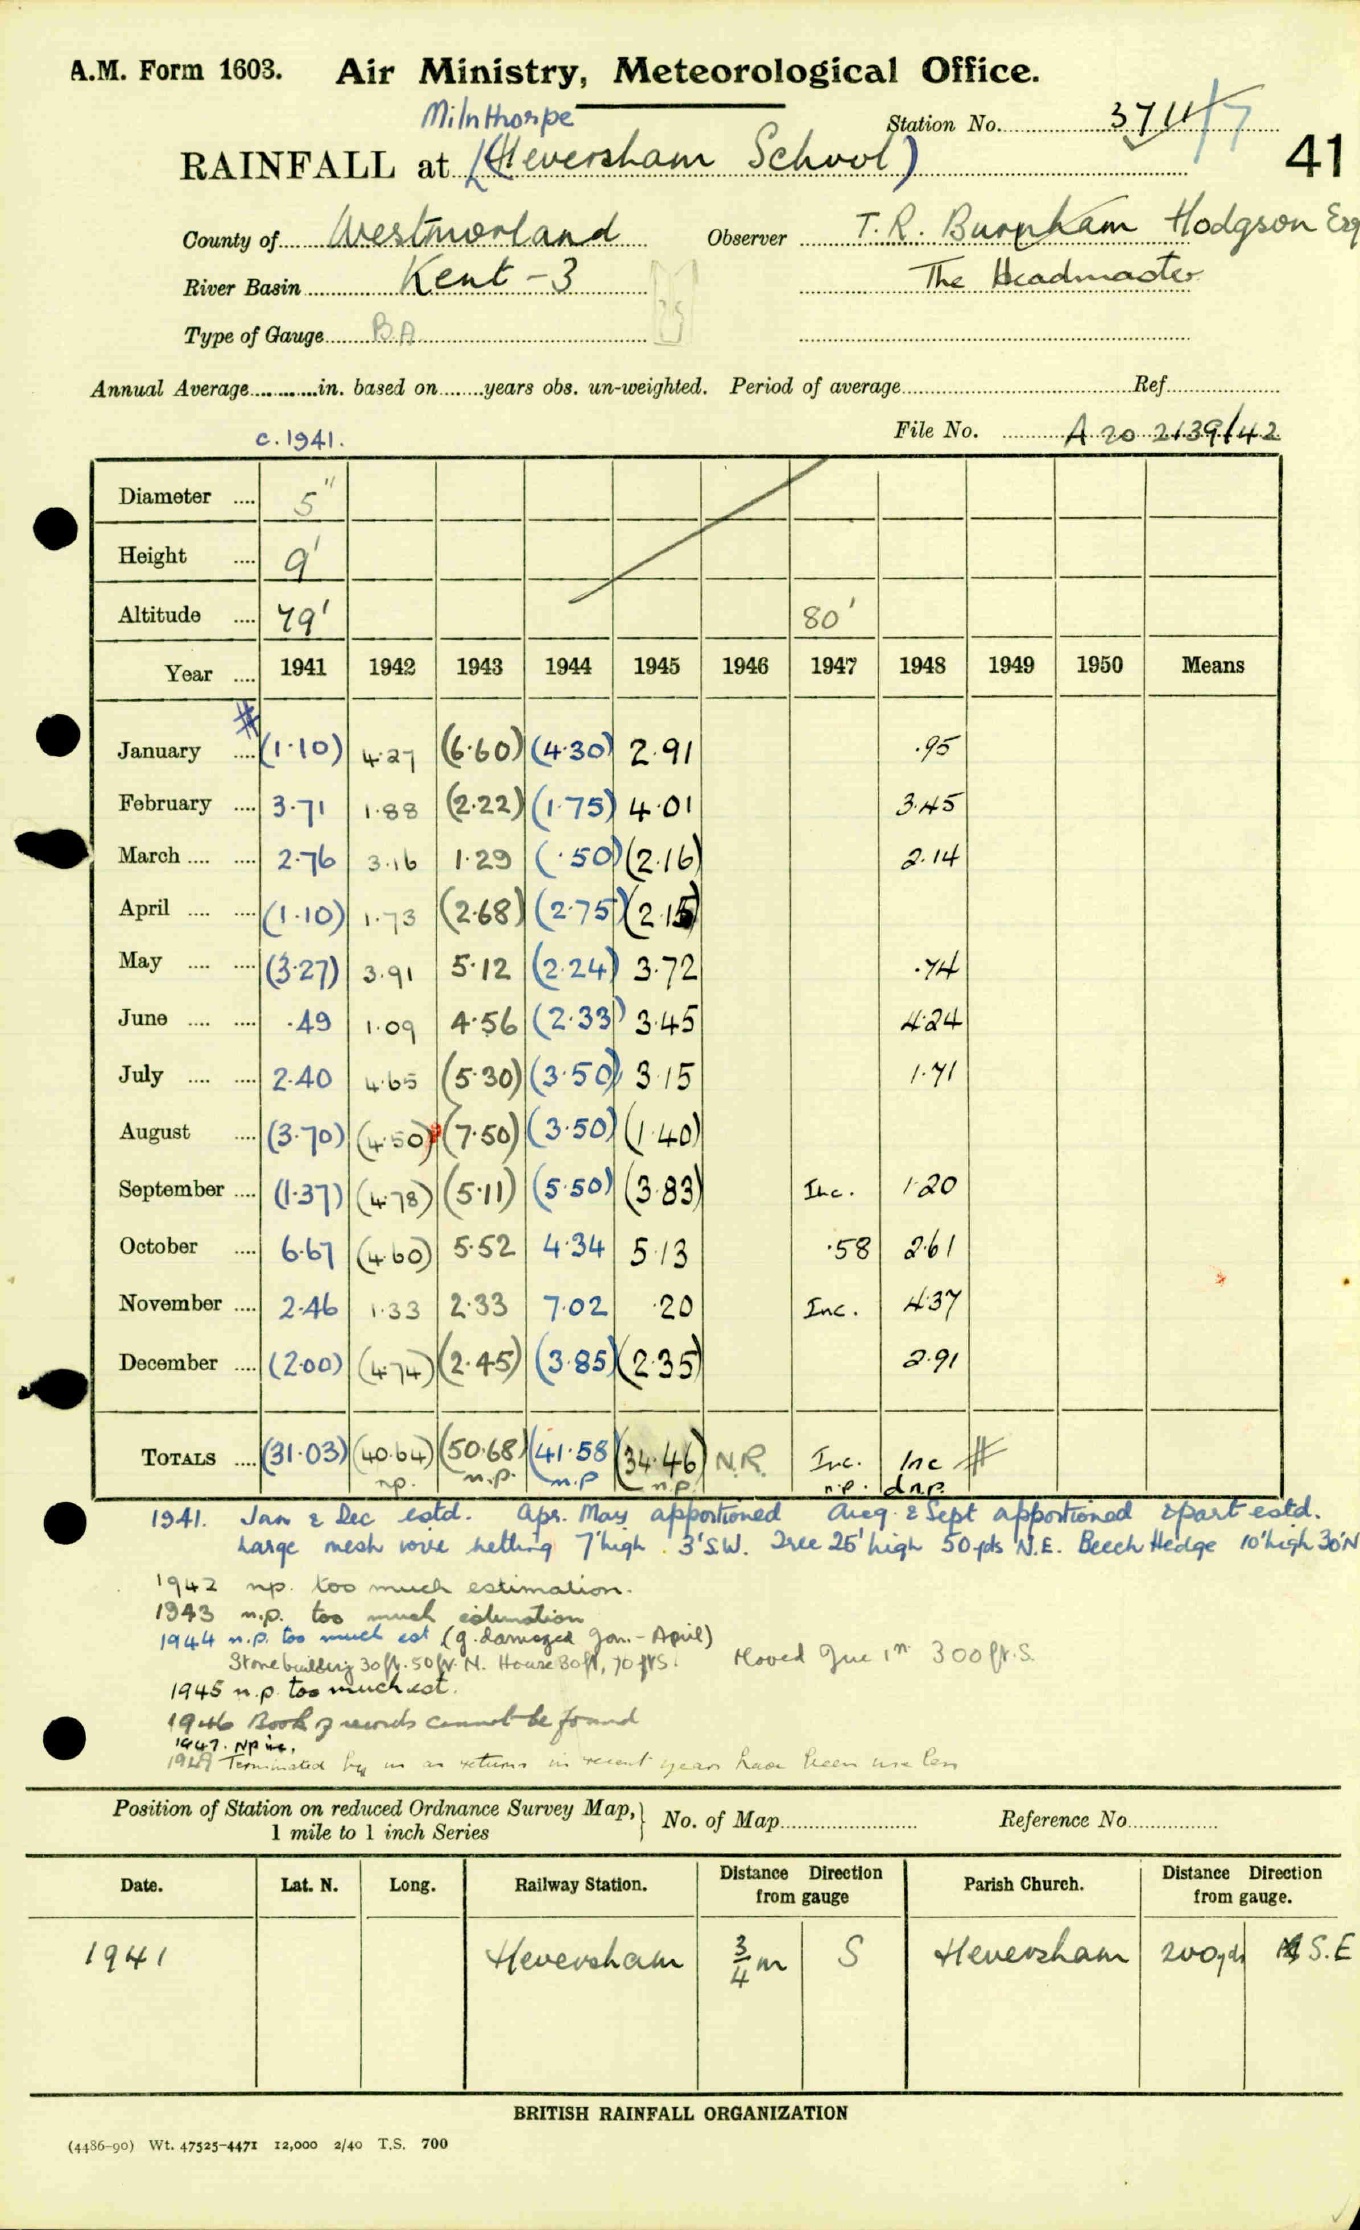 A.M. Form 1603. Air Ministry, Meteorological Office.
Milnthorpe
Station No. 3711/7
RAINFALL at (Heversham School)
41
County of Westmorland Observer T. R. Burnham Hodgson Esq
River Basin Kent - 3 The Headmaster
Type of Gauge BA
Annual Average in. based on years obs. un-weighted. Period of average Ref
File No. A 20 2139/42
c. 1941.
Diameter 5"
Height 9'
Altitude 79' 80'
Year 1941 1942 1943 1944 1945 1946 1947 1948 1949 1950 Means
January # (1.10) 4.27 (6.60) (4.30) 2.91 .95
February 3.71 1.88 (2.22) (1.75) 4.01 3.45
March 2.76 3.16 1.29 (.50) (2.16) 2.14
April (1.10) 1.73 (2.68) (2.75) (2.15)
May (3.27) 3.91 5.12 (2.24) 3.72 .74
June .49 1.09 4.56 (2.33) 3.45 4.24
July 2.40 4.65 (5.30) (3.50) 3.15 1.71
August (3.70) (4.50) (7.50) (3.50) (1.40)
September (1.37) (4.78) (5.11) (5.50) (3.83) Inc. 1.20
October 6.67 (4.60) 5.52 4.34 5.13 .58 2.61
November 2.46 1.33 2.33 7.02 .20 Inc. 4.37
December (2.00) (4.74) (2.45) (3.85) (2.35) 2.91
TOTALS (31.03) (40.64) (50.68) (41.58) (34.46) N.R. Inc. Inc #
n.p. n.p. n.p n.p. n.p. d.n.p.
1941. Jan & Dec estd. Apr. May apportioned Aug. & Sept apportioned & part estd.
Large mesh wire netting 7' high. 3' S.W. Tree 25' high 50 yds N.E. Beech Hedge 10' high 30' N
1942 n.p. too much estimation.
1943 n.p. too much estimation
1944 n.p. too much est (g. damaged Jan. - April)
Stone building 30 ft. 50 ft. N. House 30 ft, 70 ft S. Moved 300 ft. S.
1945 n.p. too much est.
1946 Book of records cannot be found
1947. NP inc.
Terminated by us as returns in recent years have been useless
Position of Station on reduced Ordnance Survey Map, } No. of Map Reference No
1 mile to 1 inch Series
Date. Lat. N. Long. Railway Station. Distance Direction from gauge Parish Church. Distance Direction from gauge.
1941 Heversham 3/4 m S Heversham 200 yds S.E
BRITISH RAINFALL ORGANIZATION
(4486-90) Wt. 47525-4471 12,000 2/40 T.S. 700